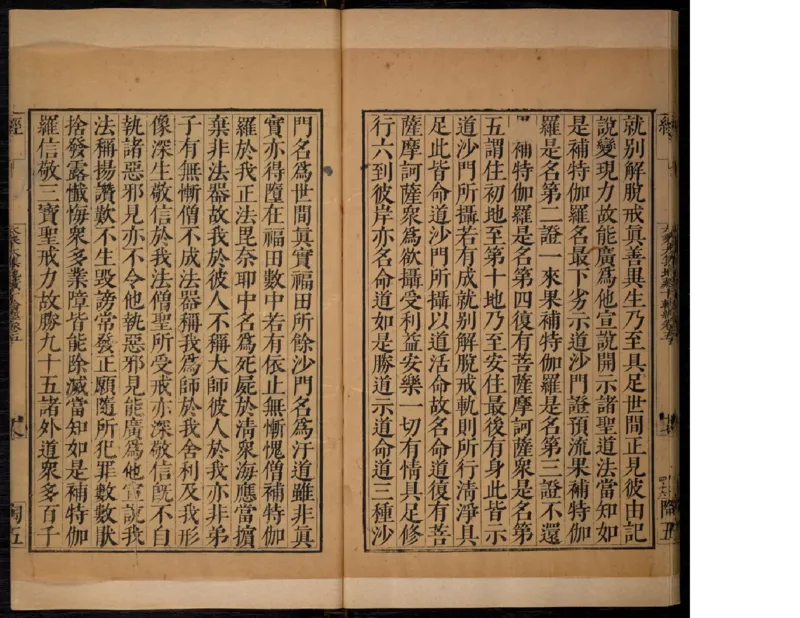 就別解脫戒真善異生乃至具足世間正見彼由記
說變現力故能廣爲他宣說開示諸聖道法當知如
是補特伽羅名最下劣示道沙門證預流果補特伽
羅是名第二證一來果補特伽羅是名第三證不還
補特伽羅是名第四復有菩薩摩訶薩衆是名第
五謂住初地至第十地乃至安住最後有身此皆示
道沙門所攝若有成就別解脫戒軌則所行清淨具
足此皆命道沙門所攝以道活命故名命道復有菩
薩摩訶薩衆爲欲攝受利益安樂一切有情具足修
行六到彼岸亦名命道如是勝道示道命道三種沙
門名爲世間眞實福田所餘沙門名爲汙道雖非眞
實亦得墮在福田數中若有依止無慚愧僧補特伽
羅於我正法毘奈耶中名爲死屍於清衆海應當擯
棄非法器故我於彼人不稱大師彼人於我亦非弟
子有無慚僧不成法器稱我爲師於我舍利及我形
像深生敬信於我法僧聖所受戒亦深敬信旣不自
執諸惡邪見亦不令他執惡邪見能廣爲他宣說我
法稱揚讚歎不生毀謗常發正願隨所犯罪數數猒
捨發露懺悔衆多業障皆能除滅當知如是補特伽
羅信敬三寶聖戒力故勝九十五諸外道衆多百千